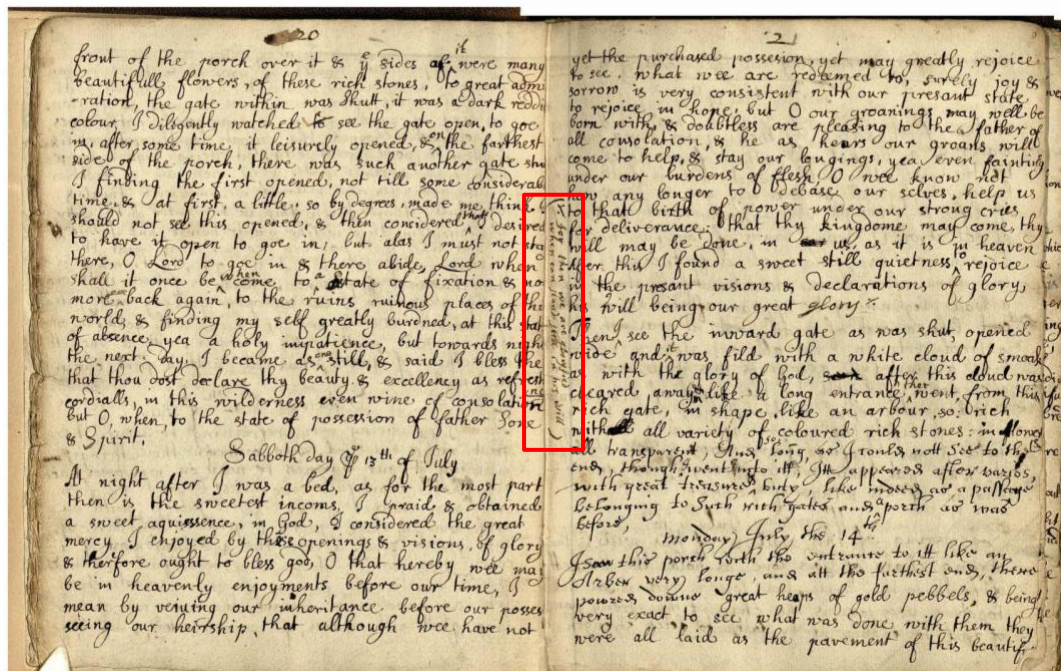 20
front of the porch over it & ye sides of it were many
beautifull flowers, of these rich stones, to great adm
-ration, the gate within was shutt, it was a dark reddi
colour, I diligently watched to see the gate open, to goe
in, after some time, it leisurely opened, & on the farthest
side of the porch, there was such another gate shu
I finding the first opened, not till some considerab
time, & at first, a little, so by degrees, made me think
should not see this opened, & then considered that I desired
to have it open to goe in, but alas I must not sta
there, O Lord to goe in & there abide, Lord when
shall it once be when come, to a state of fixation & no
more back again, to the ruins ruinous places of the
world, & finding my self greatly burdned, at this stat
of absence, yea a holy impatience, but towards night
the next day, I became as one still, & said I bless the
that thou dost declare thy beauty, & excellency as refresh
cordialls, in this wilderness even wine of consolation
but O, when, to the state of possession of father Sone
& Spirit.
Sabboth day ye 13th of July
At night after I was a bed, as for the most part
then is the sweetest incoms, I praid & obtained
a sweet aquissence, in God, & I considered the great
mercy I enjoyed by these openings & visions, of glory
& therfore ought to bless god, O that hereby wee may
be in heavenly enjoyments before our time, I
mean by veiuing our inheritance before our posses
seeing our heirship, that although wee have not
21
yet the purchased possesion, yet may greatly rejoice
to see, what wee are redeemed to, surely joy &
sorrow is very consistent with our presant state
to rejoice in hope, but O our groanings may well be
born with, & doubtless are pleasing to the father of
all consolation, & he as hears our groans will
come to help, & stay our longings, yea even fainting
under our burdens of flesh, O wee know not
how any longer to debase our selves, help us
to that birth of power under our strong cries
for deliverance, that thy kingdome may come, thy
will may be done, in us, as it is in heaven
After this I found a sweet still quietness, to rejoice
in the presant visions & declarations of glory,
his will being our great glory
Then I see the inward gate as was shut, opened
wide and it was fild with a white cloud of smoak
as with the glory of God, after this cloud was
cleared away, like a long entrance, went from this
rich gate, in shape, like an arbour, so rich
with all variety of coloured rich stones: in flower
all transparent, And so long, as I could nott see to the
end, though I went into itt, Itt appeared affor varios,
with great treasured buty, like indeed as a passage
belonging to such rich gates and a porch as was
before,
monday July the 14th
I saw this porch with the entrance to itt like an
Arber very longe, and att the furthest end, there
powred downe great heaps of gold pebbels, & being
very exact to see what was done with them they
were all laid as the pavement of this beautif